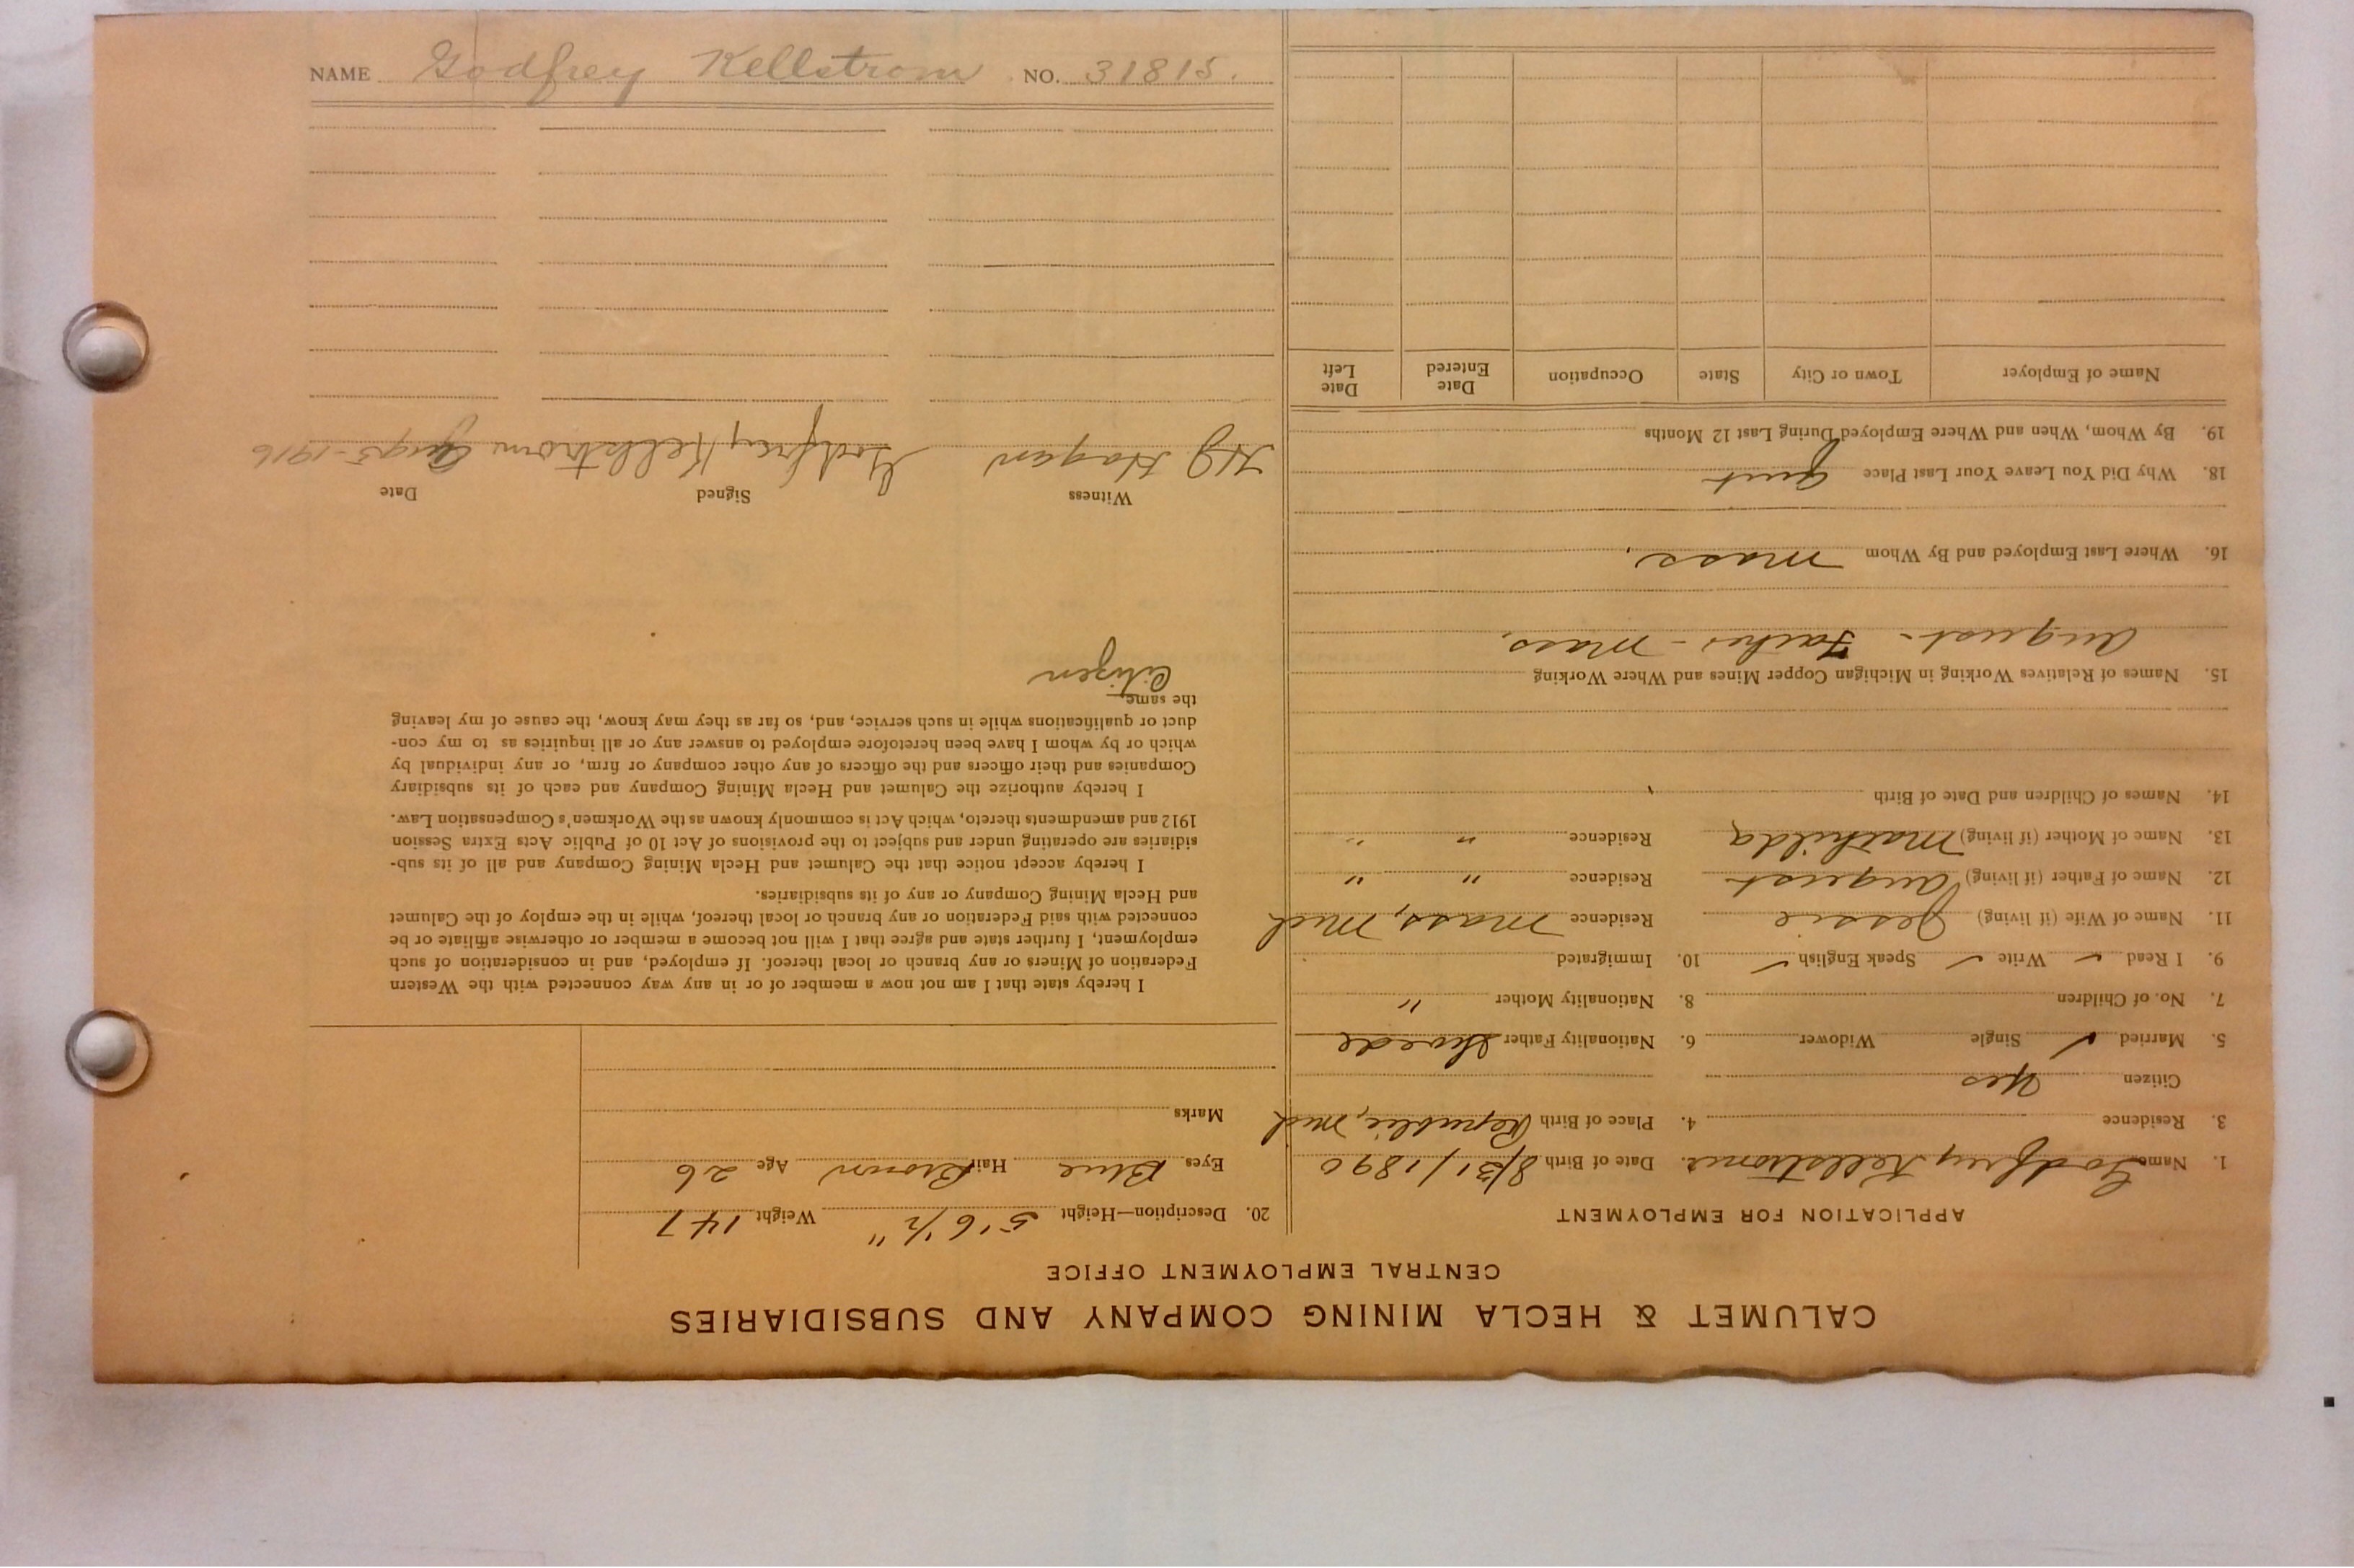 NAME Godfrey Kellstrom NO. 31815.
CALUMET & HECLA MINING COMPANY AND SUBSIDIARIES
CENTRAL EMPLOYMENT OFFICE
APPLICATION FOR EMPLOYMENT
1. Name Godfrey Kellstrom 2. Date of Birth 8/31/1890
3. Residence 4. Place of Birth Republic, Mich
Citizen Yes
5. Married ✓ Single Widower 6. Nationality Father Swede
7. No. of Children 8. Nationality Mother "
9. I Read ✓ Write ✓ Speak English ✓ 10. Immigrated
11. Name of Wife (if living) Jessie Residence Mass, Mich
12. Name of Father (if living) August Residence " "
13. Name of Mother (if living) Mathilda Residence " "
14. Names of Children and Date of Birth
15. Names of Relatives Working in Michigan Copper Mines and Where Working
August - Father - Mass.
16. Where Last Employed and By Whom Mass.
18. Why Did You Leave Your Last Place Quit
19. By Whom, When and Where Employed During Last 12 Months
Name of Employer Town or City State Occupation Date Entered Date Left
20. Description—Height 5' 6 1/2" Weight 147
Eyes Blue Hair Brown Age 26
Marks
I hereby state that I am not now a member of or in any way connected with the Western
Federation of Miners or any branch or local thereof. If employed, and in consideration of such
employment, I further state and agree that I will not become a member or otherwise affiliate or be
connected with said Federation or any branch or local thereof, while in the employ of the Calumet
and Hecla Mining Company or any of its subsidiaries.
I hereby accept notice that the Calumet and Hecla Mining Company and all of its sub-
sidiaries are operating under and subject to the provisions of Act 10 of Public Acts Extra Session
1912 and amendments thereto, which Act is commonly known as the Workmen's Compensation Law.
I hereby authorize the Calumet and Hecla Mining Company and each of its subsidiary
Companies and their officers and the officers of any other company or firm, or any individual by
which or by whom I have been heretofore employed to answer any or all inquiries as to my con-
duct or qualifications while in such service, and, so far as they may know, the cause of my leaving
the same.
Citizen
Witness Signed Date
HJ Hagan Godfrey Kellstrom Aug 5-1916